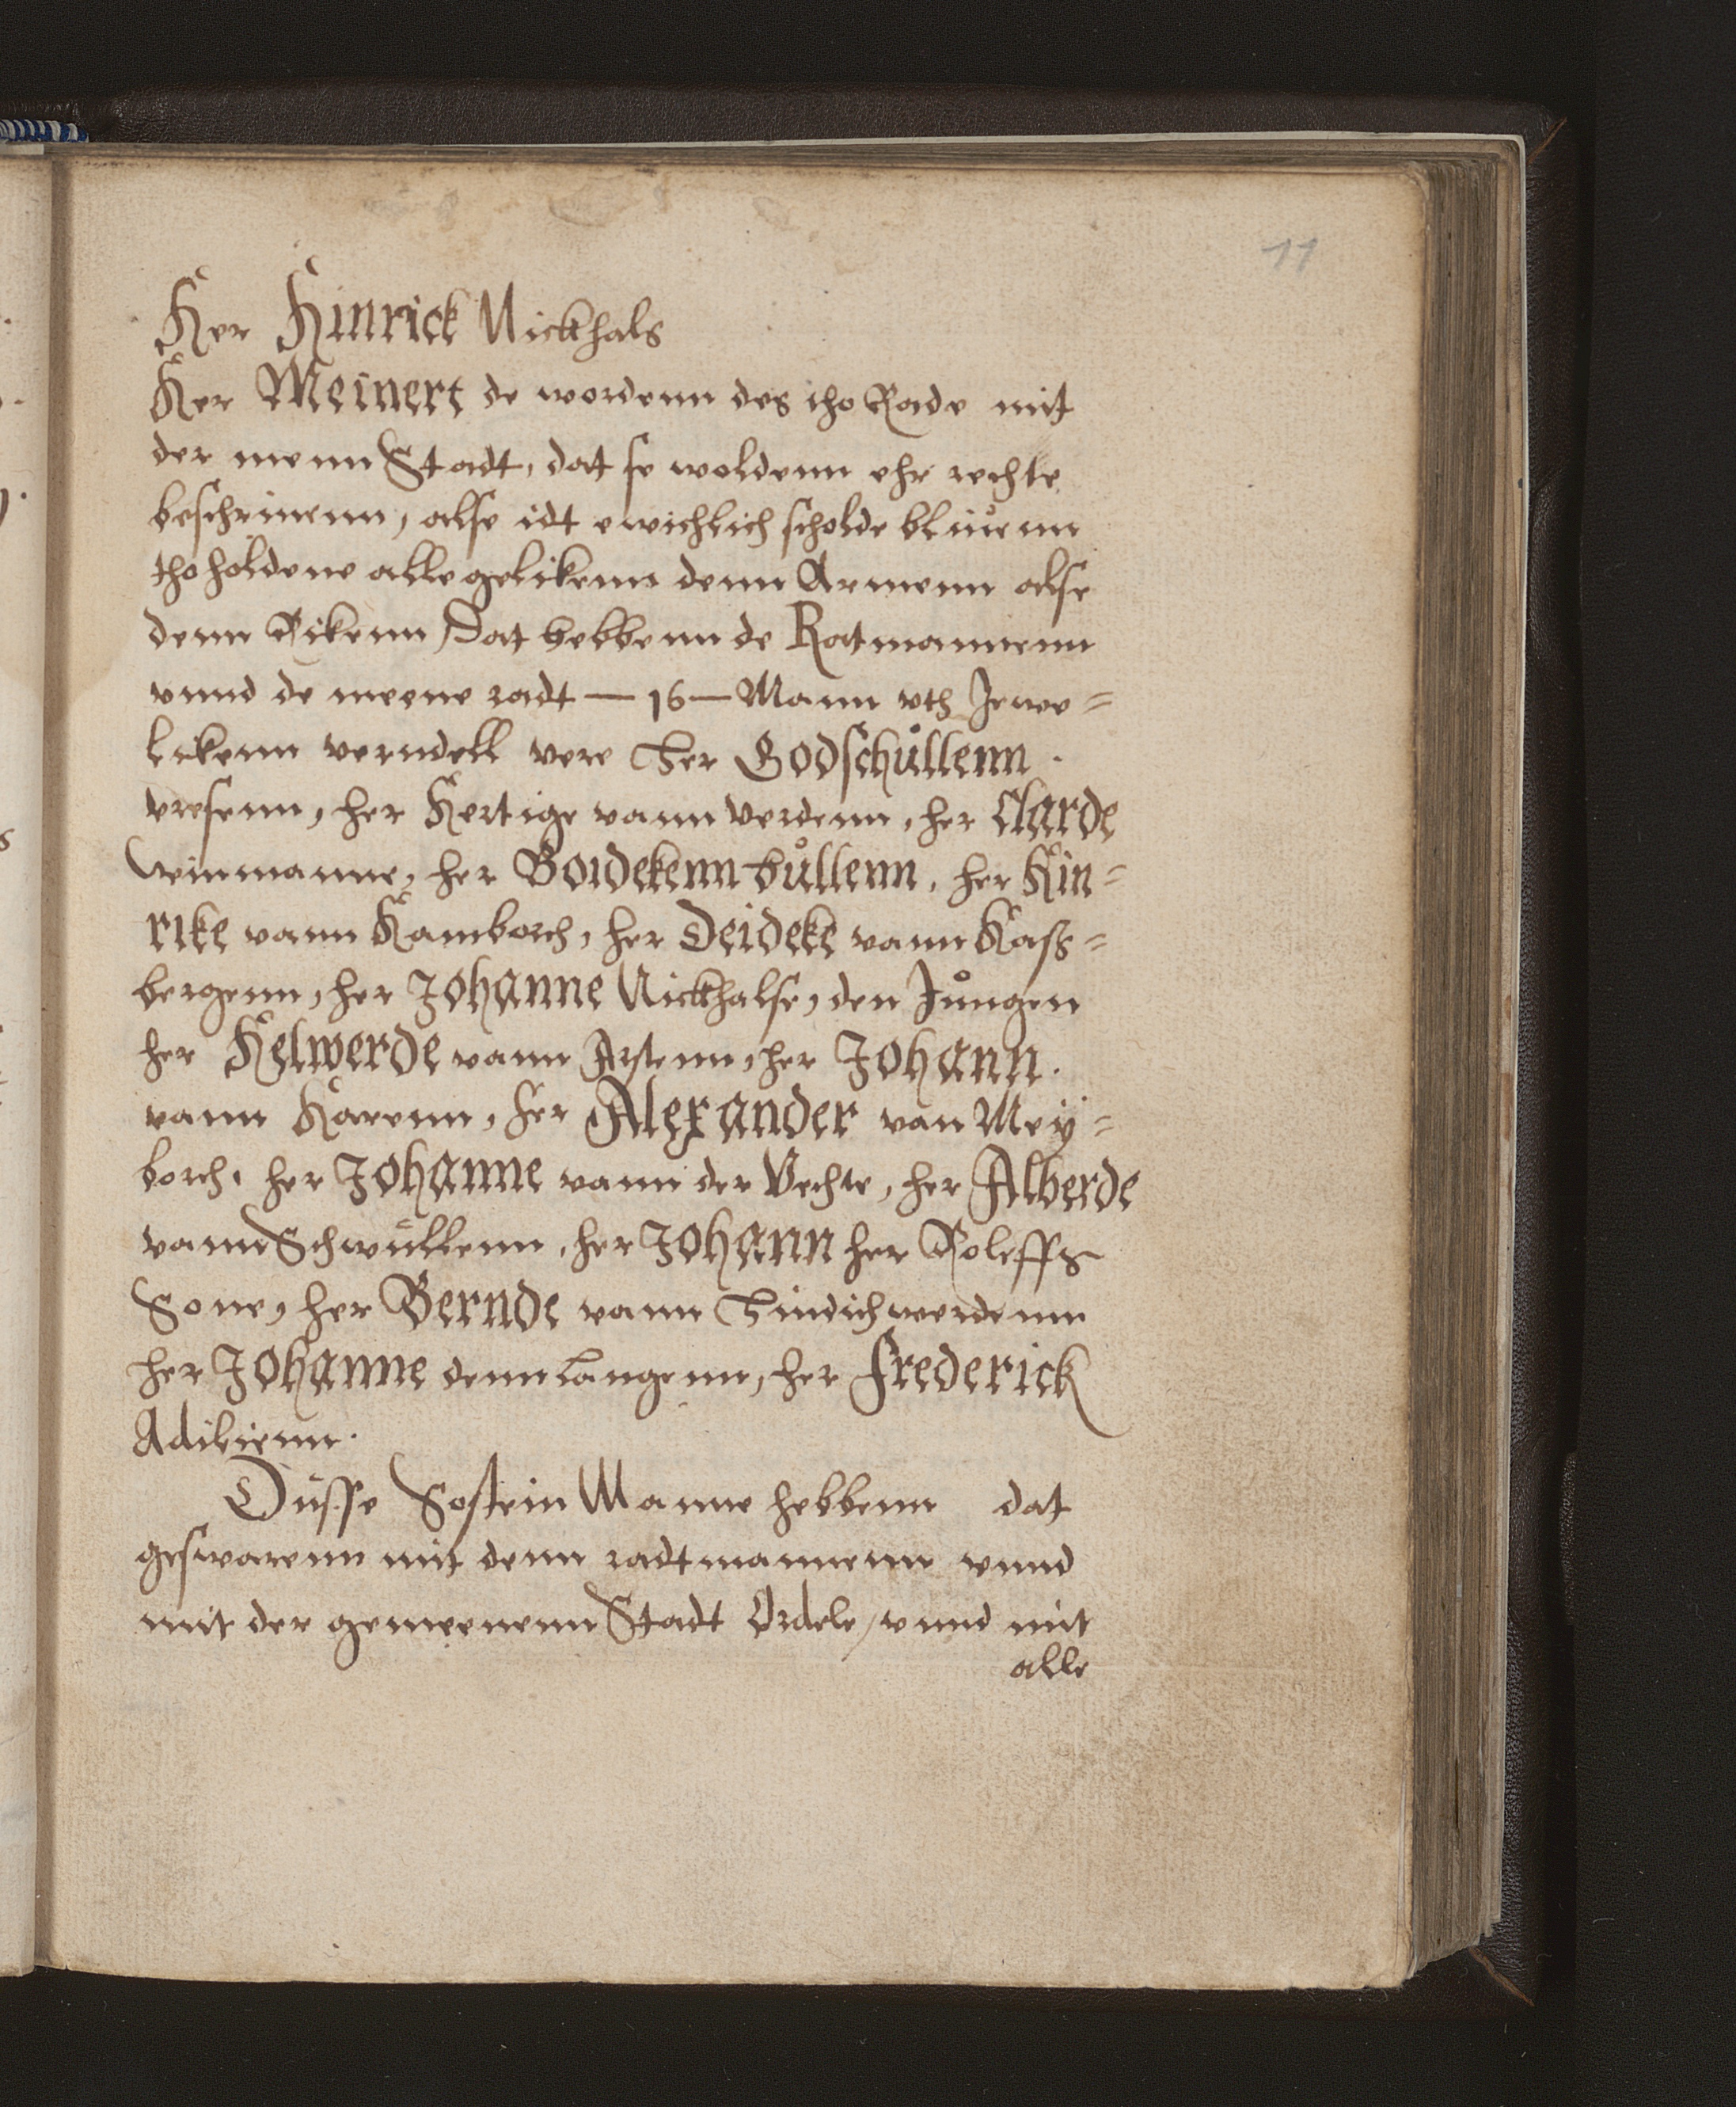 11
Her Hinrick Nickhals
Her Meinert de wordenn des tho Rade mit
der menn Stadt, dat se woldenn ehr rechte
beschriuenn, alse idt ewichlich scholde bliuenn
tho holdene alle gelikenn denn Armenn alse
denn Rikenn, Dat hebbenn de Ratmannenn
vnnd de meene radt — 16 — Mann vth Jewe=
likenn verndell vere Her Godschullenn.
vresenn, her Hertige vann Verdenn, her Clarde
Winmanne, her Boidekenn bullenn, her Hin=
rike vann Hamborch, her Deideke vann Haß=
bergenn, her Johanne Nickhalse, den Jungen
her Helwerde vann Arstenn, her Johann.
vann Harenn, her Alexander van Mey=
borch. her Johanne vann der Vechte, her Alberde
vann Schwullenn, her Johann her Roleffs
Sone, her Bernde vann Hindichwerdenn
her Johanne denn langenn, her Frederick
Adilienn.
Dusse Sostein Manne hebbenn dat
geswarenn mit denn radtmannenn vnnd
mit der gemeenenn Stadt Ordele, vnnd mit
alle